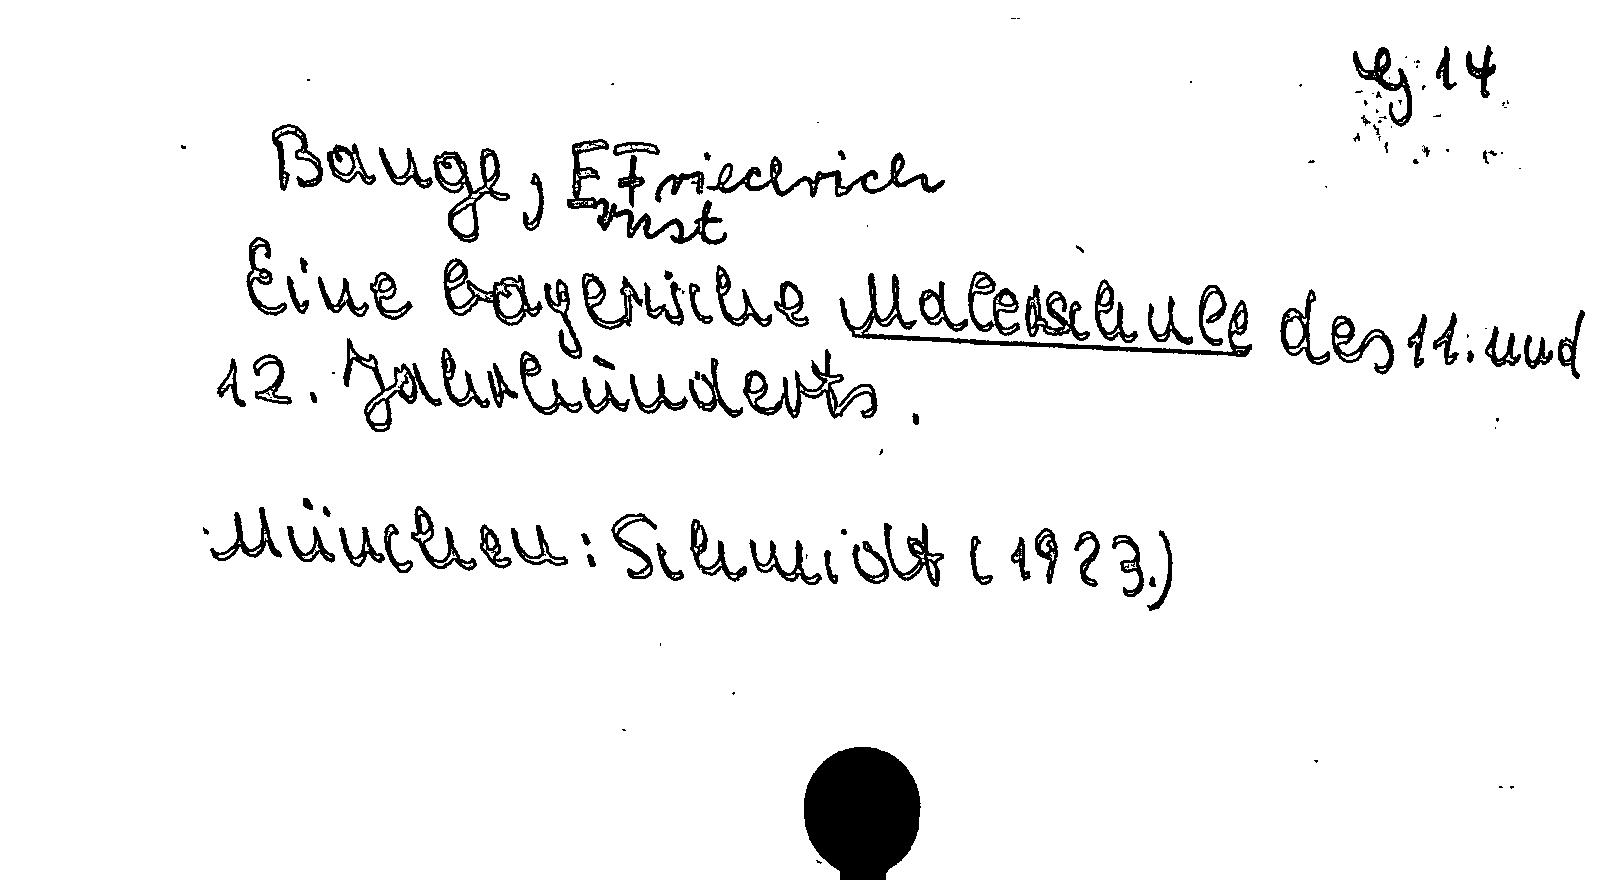 G 14
Bauge, E Friedrich
rnst
Eine bayerische Malerschule des 11. und
12. Jahrhunderts.
München: Schmidt (1923.)